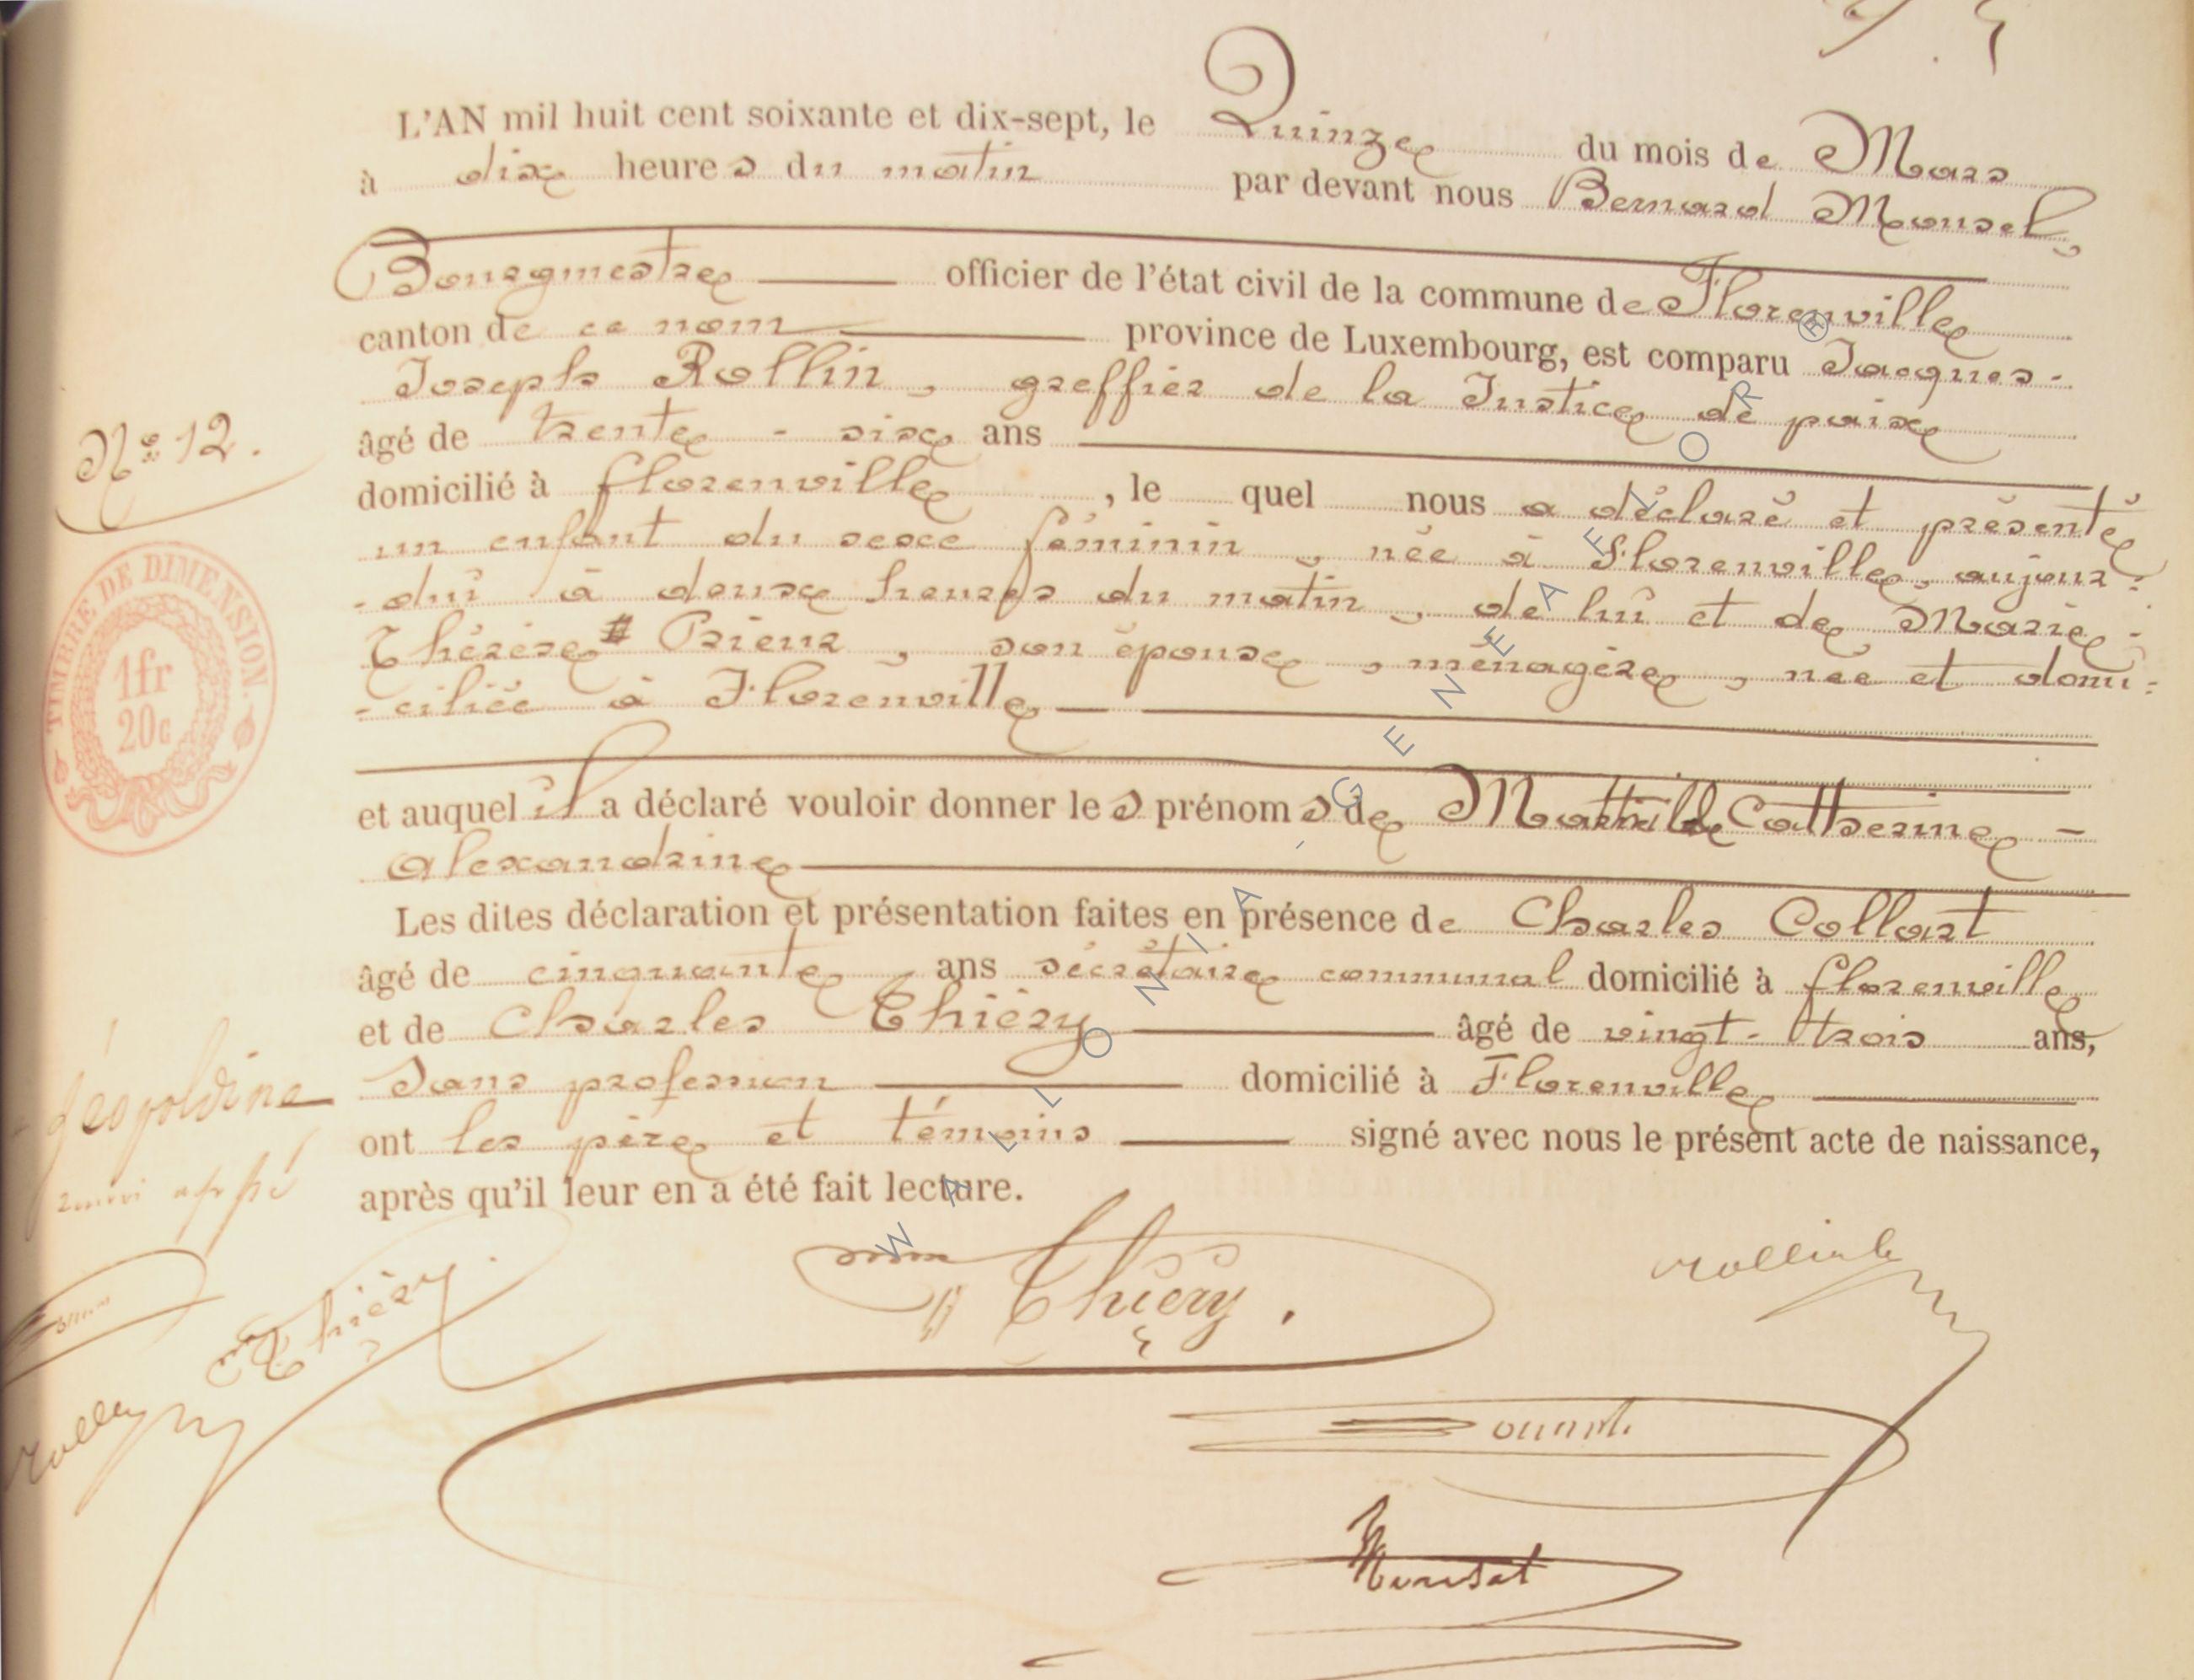 L'AN mil huit cent soixante et dix-sept, le Quinze du mois de Mars
à dix heures du matin par devant nous Bernard Monsel,
Bourgmestre officier de l'état civil de la commune de Florenville
canton de ce nom province de Luxembourg, est comparu Jacques-
Joseph Rollin, greffier de la Justice de paix
âgé de trente-six ans
N° 12.
domicilié à florenville, le quel nous a déclaré et présenté
un enfant du sexe féminin, née à Florenville, aujour-
-dui à deux heures du matin, de lui et de Marie-
Thérèse Prieur, son épouse, ménagère, née et domi-
-ciliée à Florenville
TIMBRE DE DIMENSION.
1fr
20c
et auquel il a déclaré vouloir donner les prénoms de Mathilde Catherine -
Alexandrine
Les dites déclaration et présentation faites en présence de Charles Collart
âgé de cinquante ans sécrétaire communal domicilié à florenville
et de Charles Thiéry âgé de vingt-trois ans,
Sans profession domicilié à Florenville
ont les père et témoins signé avec nous le présent acte de naissance,
après qu'il leur en a été fait lecture.
Léopoldine
Thiéry.
Thiéry.
WALLONIA - GENEAFLOR ®